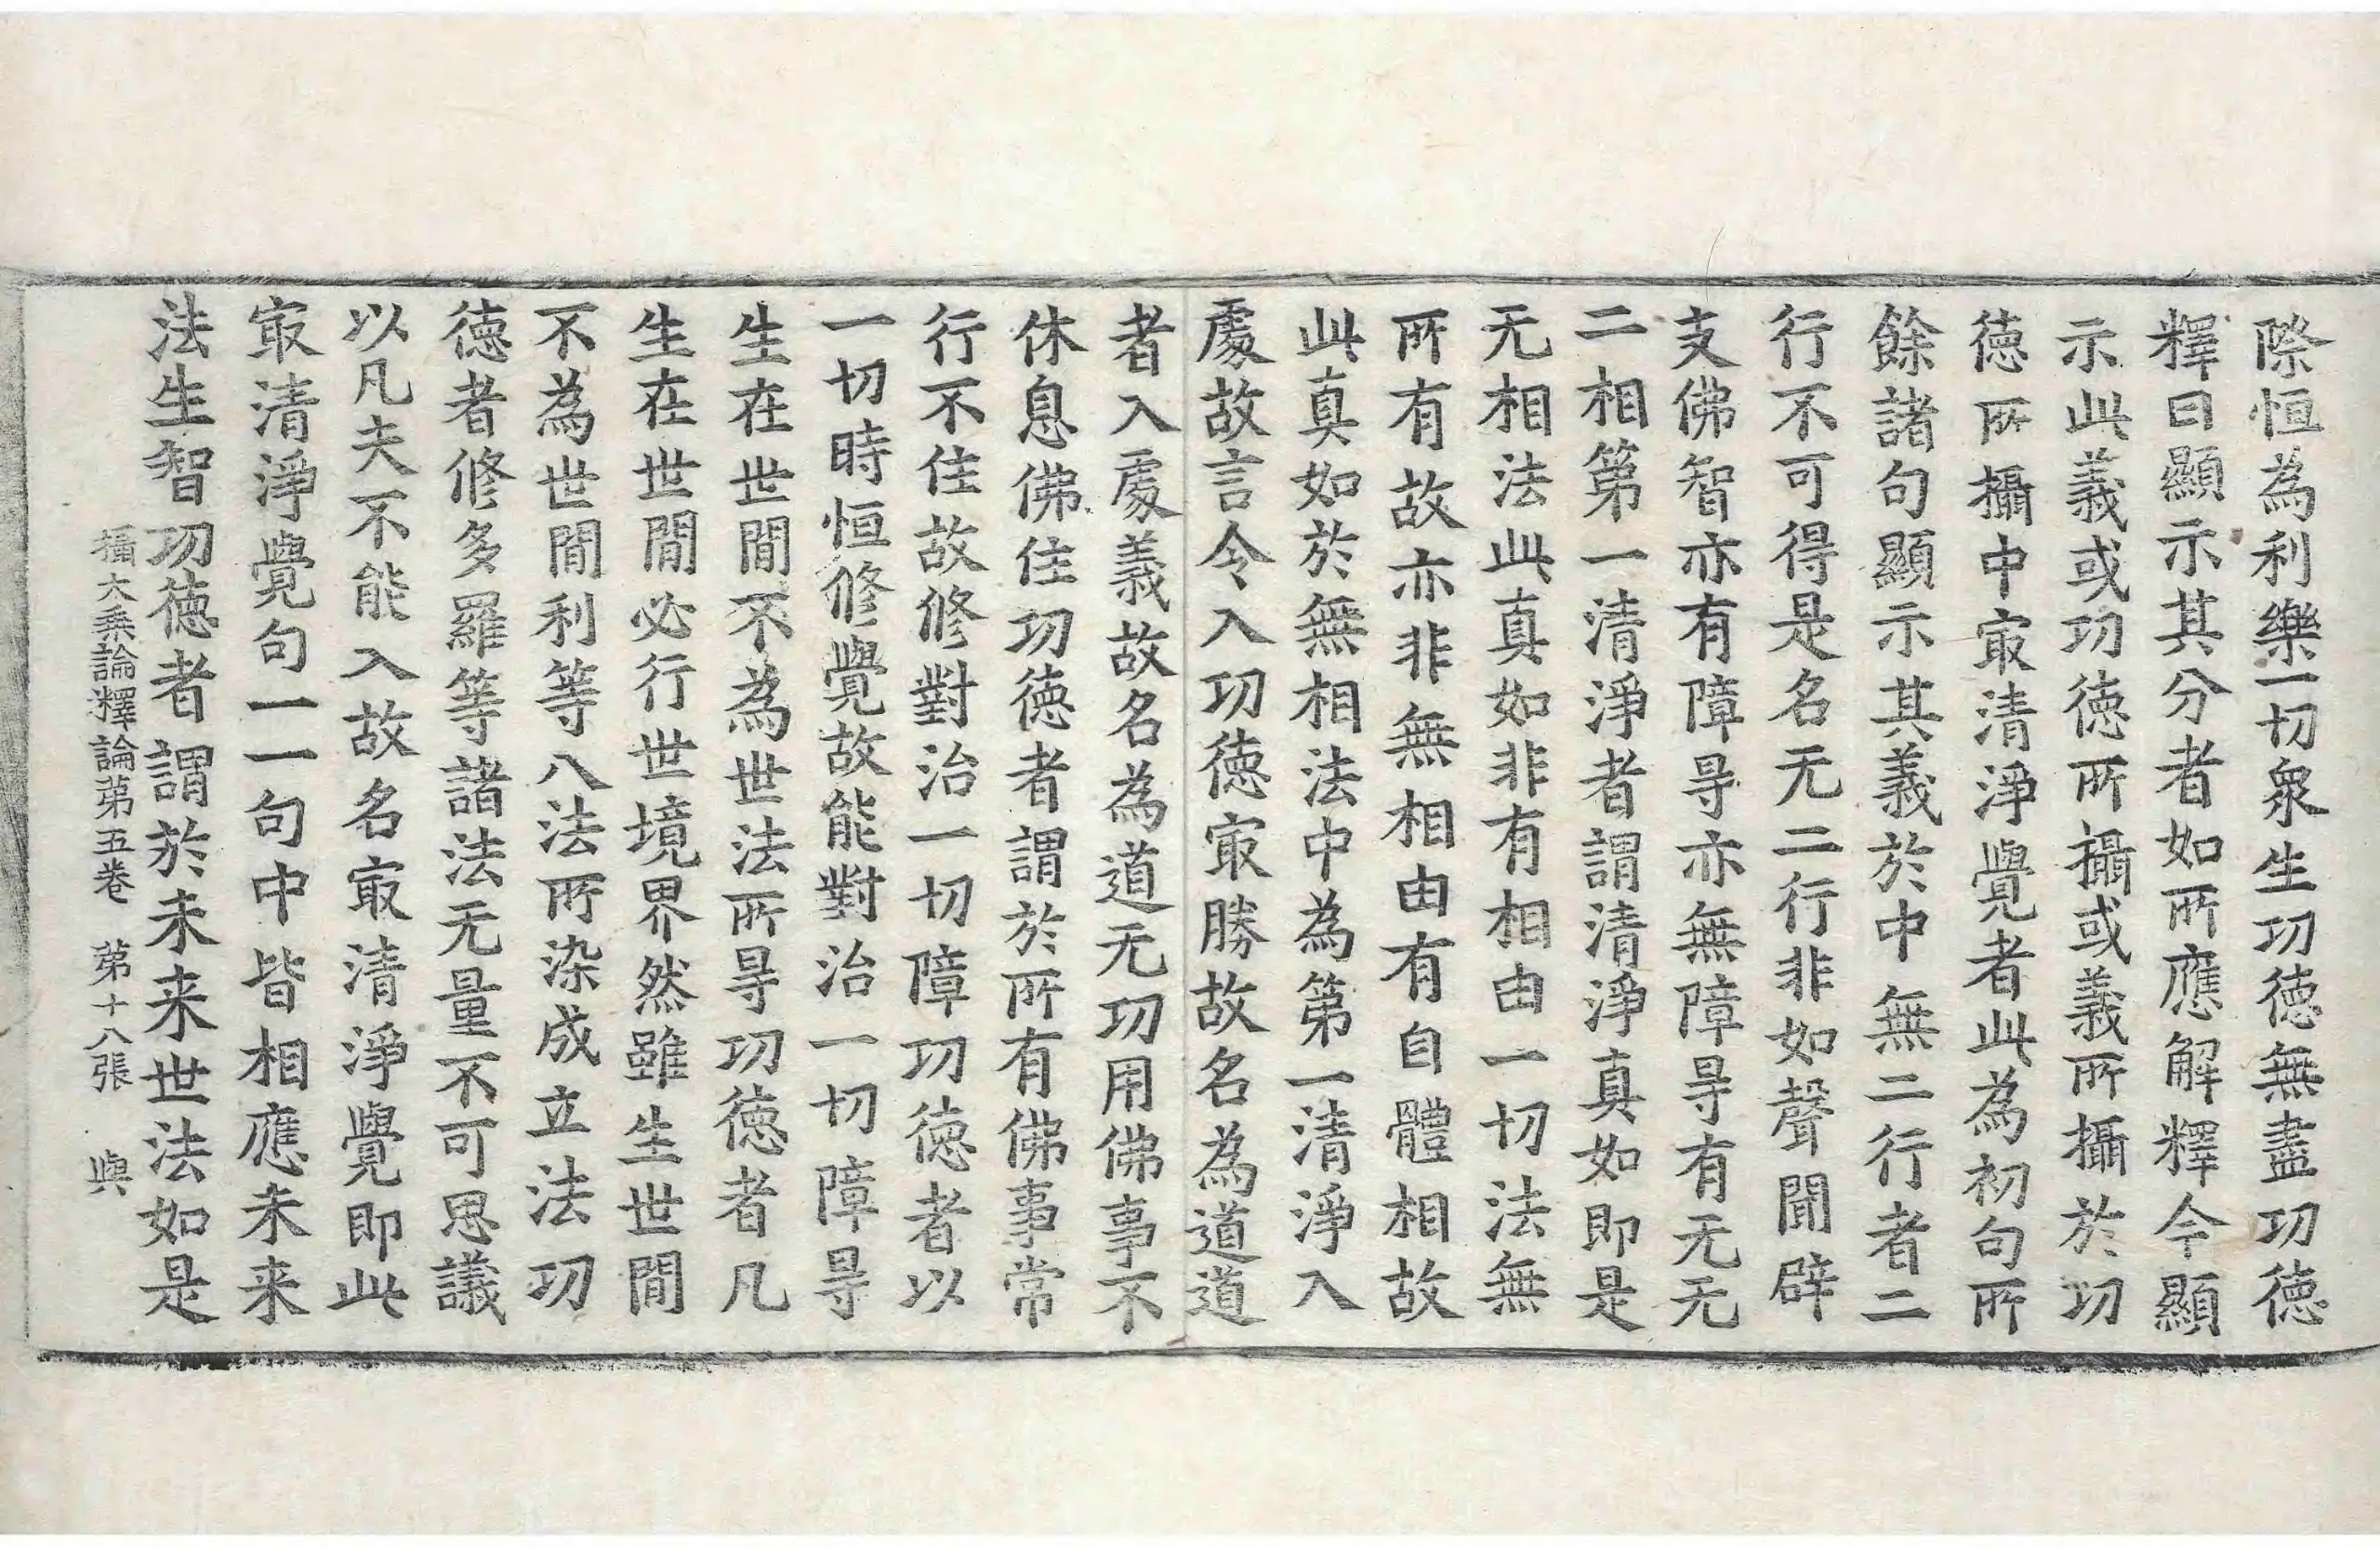 際恒為利樂一切衆生功徳無盡功徳
釋曰顯示其分者如所應解釋今顯
示此義或功徳所攝或義所攝於功
徳所攝中㝡清淨覺者此為初句所
餘諸句顯示其義於中無二行者二
行不可得是名无二行非如聲聞辟
支佛智亦有障㝵亦無障㝵有无无
二相第一清淨者謂清淨真如即是
无相法此真如非有相由一切法無
所有故亦非無相由有自體相故
此真如於無相法中為第一清淨入
處故言令入功徳㝡勝故名為道道
者入處義故名為道无功用佛事不
休息佛住功徳者謂於所有佛事常
行不住故修對治一切障功徳者以
一切時恒修覺故能對治一切障㝵
生在世間不為世法所㝵功徳者凡
生在世間必行世境界然雖生世間
不為世間利等八法所染成立法功
徳者修多羅等諸法无量不可思議
以凡夫不能入故名㝡清淨覺即此
㝡清淨覺句一一句中皆相應未来
法生智功徳者謂於未来世法如是
攝大乗論釋論第五卷　第十八張　與